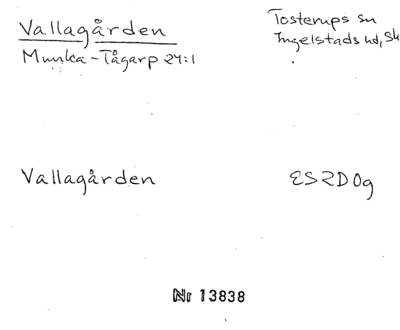 Vallagården
Tosterups sn
Munka-Tågarp 24:1
Ingelstads hd, Sk
Vallagården
ES2D0g
Nr 13838